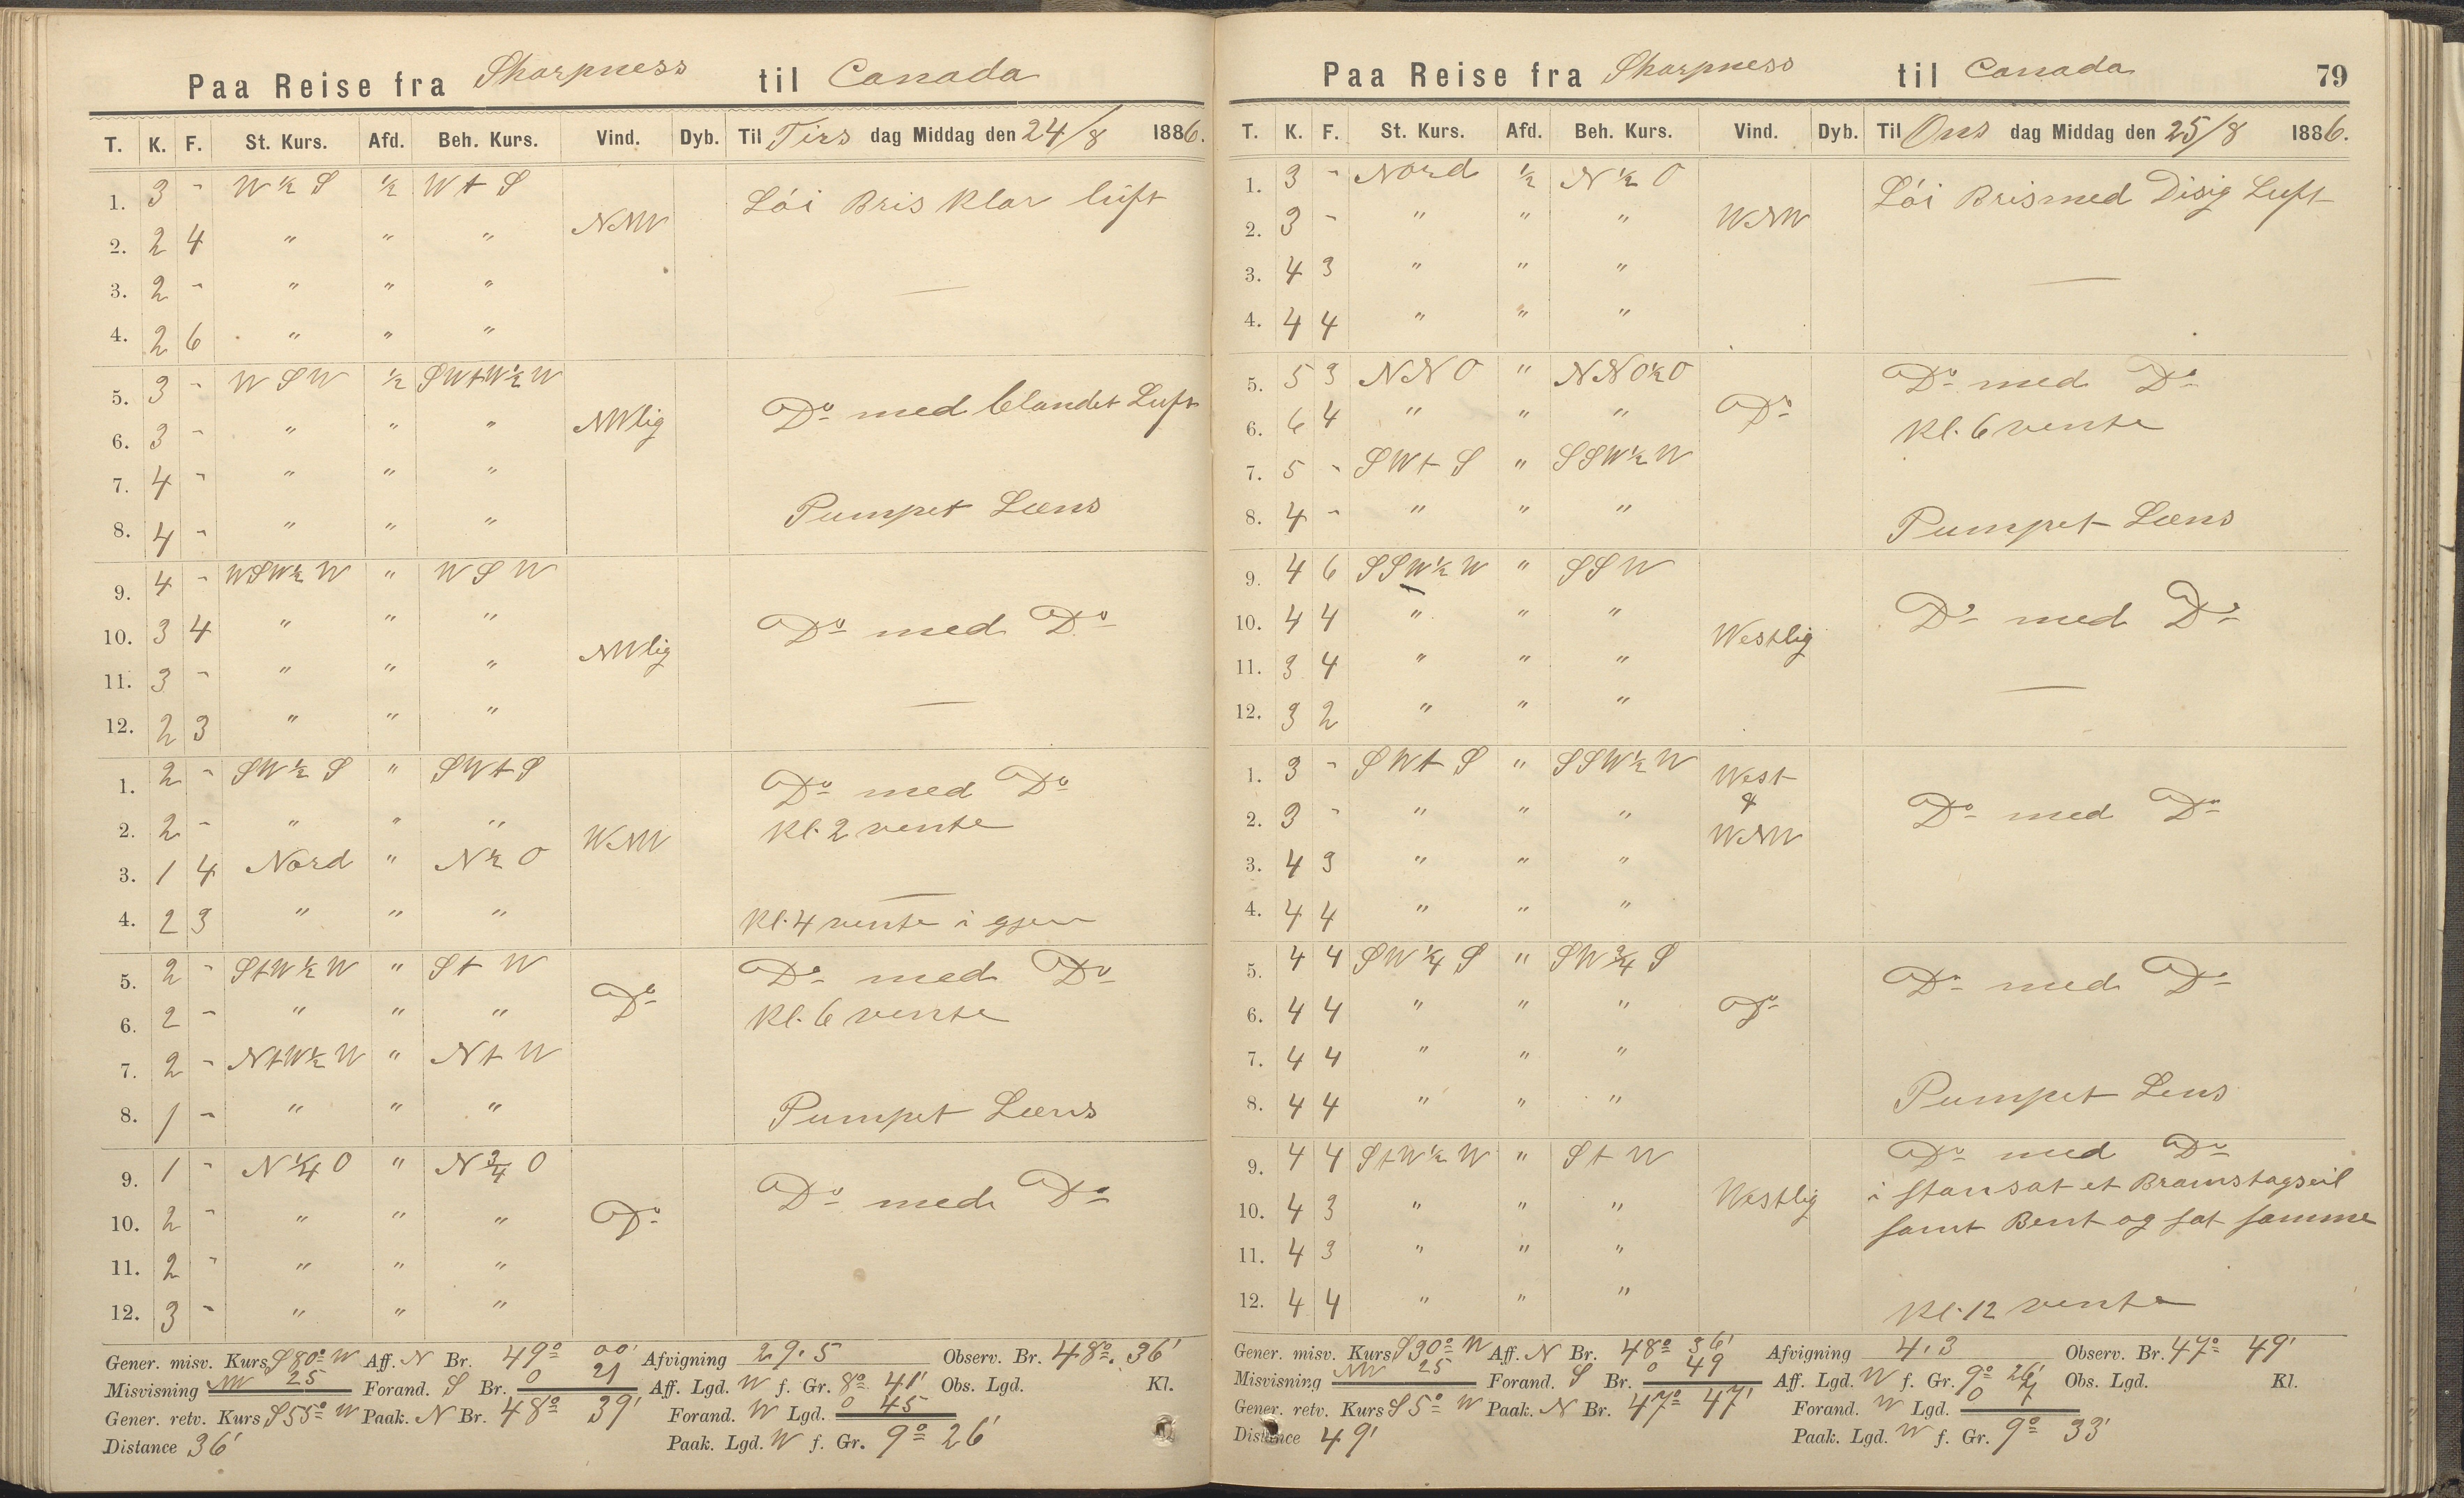 Paa Reise fra Sharpness til Canada
T. K. F. St. Kurs. Afd. Beh. Kurs. Vind. Dyb. Til Tirs dag Middag den 24/8 1886.
1. 3 - W ½ S ½ W t S Löi Bris Klar luft
2. 2 4 " " " NNW
3. 2 - " " " —
4. 2 6 " " "
5. 3 - W S W ½ SWtW½W
6. 3 - " " " NWlig Do med blandet Luft
7. 4 - " " "
8. 4 - " " " Pumpet Læns
9. 4 - WSW½W " W S W
10. 3 4 " " " NWlig Do med Do
11. 3 - " " "
12. 2 3 " " " —
1. 2 - SW½S " SWtS Do med Do
2. 2 - " " " WNW Kl. 2 vente
3. 1 4 Nord " N½O —
4. 2 3 " " " Kl. 4 vente i gjen
5. 2 - StW½W " St W Do Do med Do
6. 2 - " " " Kl. 6 vente
7. 2 - NtW½W " Nt W
8. 1 - " " " Pumpet Læns
9. 1 - N¼O " N¾O Do med Do
10. 2 - " " " Do
11. 2 - " " "
12. 3 - " " "
Gener. misv. Kurs S80° W Aff. N Br. 49° 00' Afvigning 29.5 Observ. Br. 48°. 36'
Misvisning NW 25 Forand. S Br. 0 21 Aff. Lgd. W f. Gr. 8° 41' Obs. Lgd. Kl.
Gener. retv. Kurs S55° W Paak. N Br. 48° 39' Forand. W Lgd. 0 45
Distance 36' Paak. Lgd. W f. Gr. 9° 26'
Paa Reise fra Sharpness til Canada 79
T. K. F. St. Kurs. Afd. Beh. Kurs. Vind. Dyb. Til Ons dag Middag den 25/8 1886.
1. 3 - Nord ½ N½O Löi Bris med Disig Luft
2. 3 - " " " WNW
3. 4 3 " " " —
4. 4 4 " " "
5. 5 3 NNO " NNO½O Do med Do
6. 6 4 " " " Do Kl. 6 vente
7. 5 - SWt S " SSW½W
8. 4 - " " " Pumpet Læns
9. 4 6 SSW½W " SSW
10. 4 4 " " " Westlig Do med Do
11. 3 4 " " "
12. 3 2 " " " —
1. 3 - SWt S " SSW½W West
2. 3 - " " " & WNW Do med Do
3. 4 3 " " "
4. 4 4 " " "
5. 4 4 SW¼S " SW¾S Do med Do
6. 4 4 " " " Do
7. 4 4 " " "
8. 4 4 " " " Pumpet Lens
9. 4 4 StW½W " St W Do med Do
10. 4 3 " " " Westlig i stansat et Bramstagseil
samt Bent og sat samme
11. 4 3 " " "
12. 4 4 " " " Kl. 12 vente
Gener. misv. Kurs S30° W Aff. N Br. 48° 36' Afvigning 4.3 Observ. Br. 47° 49'
Misvisning NW 25 Forand. S Br. 0 49 Aff. Lgd. W f. Gr. 9° 26' Obs. Lgd. Kl.
Gener. retv. Kurs S5° W Paak. N Br. 47° 47' Forand. W Lgd. 0 7
Distance 49' Paak. Lgd. W f. Gr. 9° 33'